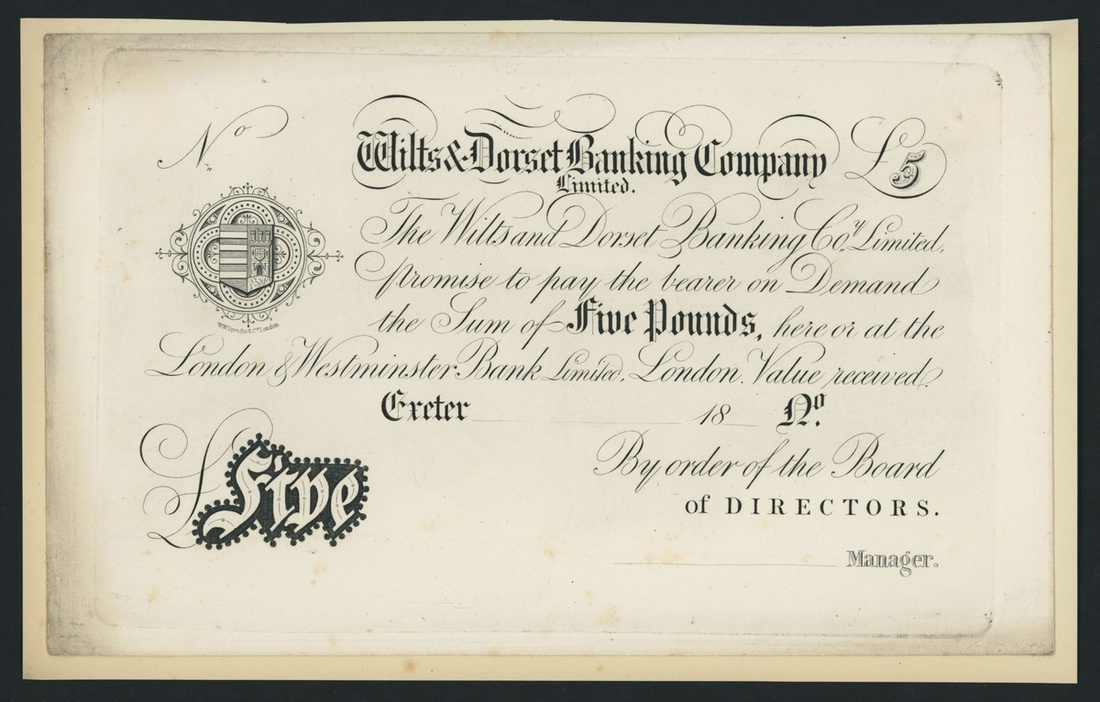 No
Wilts & Dorset Banking Company
£5
Limited.
The Wilts and Dorset Banking Coy. Limited,
promise to pay the bearer on Demand
the Sum of Five Pounds, here or at the
W.W. Sprague & Co. London.
London & Westminster Bank Limited, London. Value received.
Exeter 18 No.
£Five
By order of the Board
of DIRECTORS.
Manager.